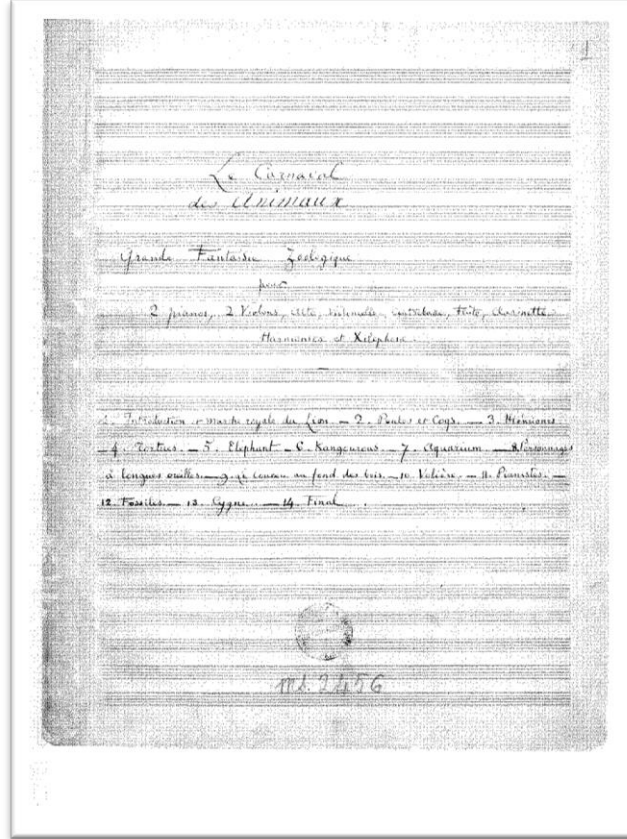 1
Le Carnaval
des Animaux
Grande Fantaisie Zoologique
pour
2 pianos, 2 Violons, alto, violoncelle, contrebasse, Flûte, clarinette
Harmonica et Xilophone
1. Introduction et marche royale du Lion — 2. Poules et Coqs. — 3. Hémiones
— 4. Tortues. — 5. Elephant — 6. Kangourous. — 7. Aquarium. — 8. Personnages
à longues oreilles. — 9. Le coucou au fond des bois. — 10. Volière. — 11. Pianistes. —
12. Fossiles. — 13. Cygne. — 14. Final
ms. 2456